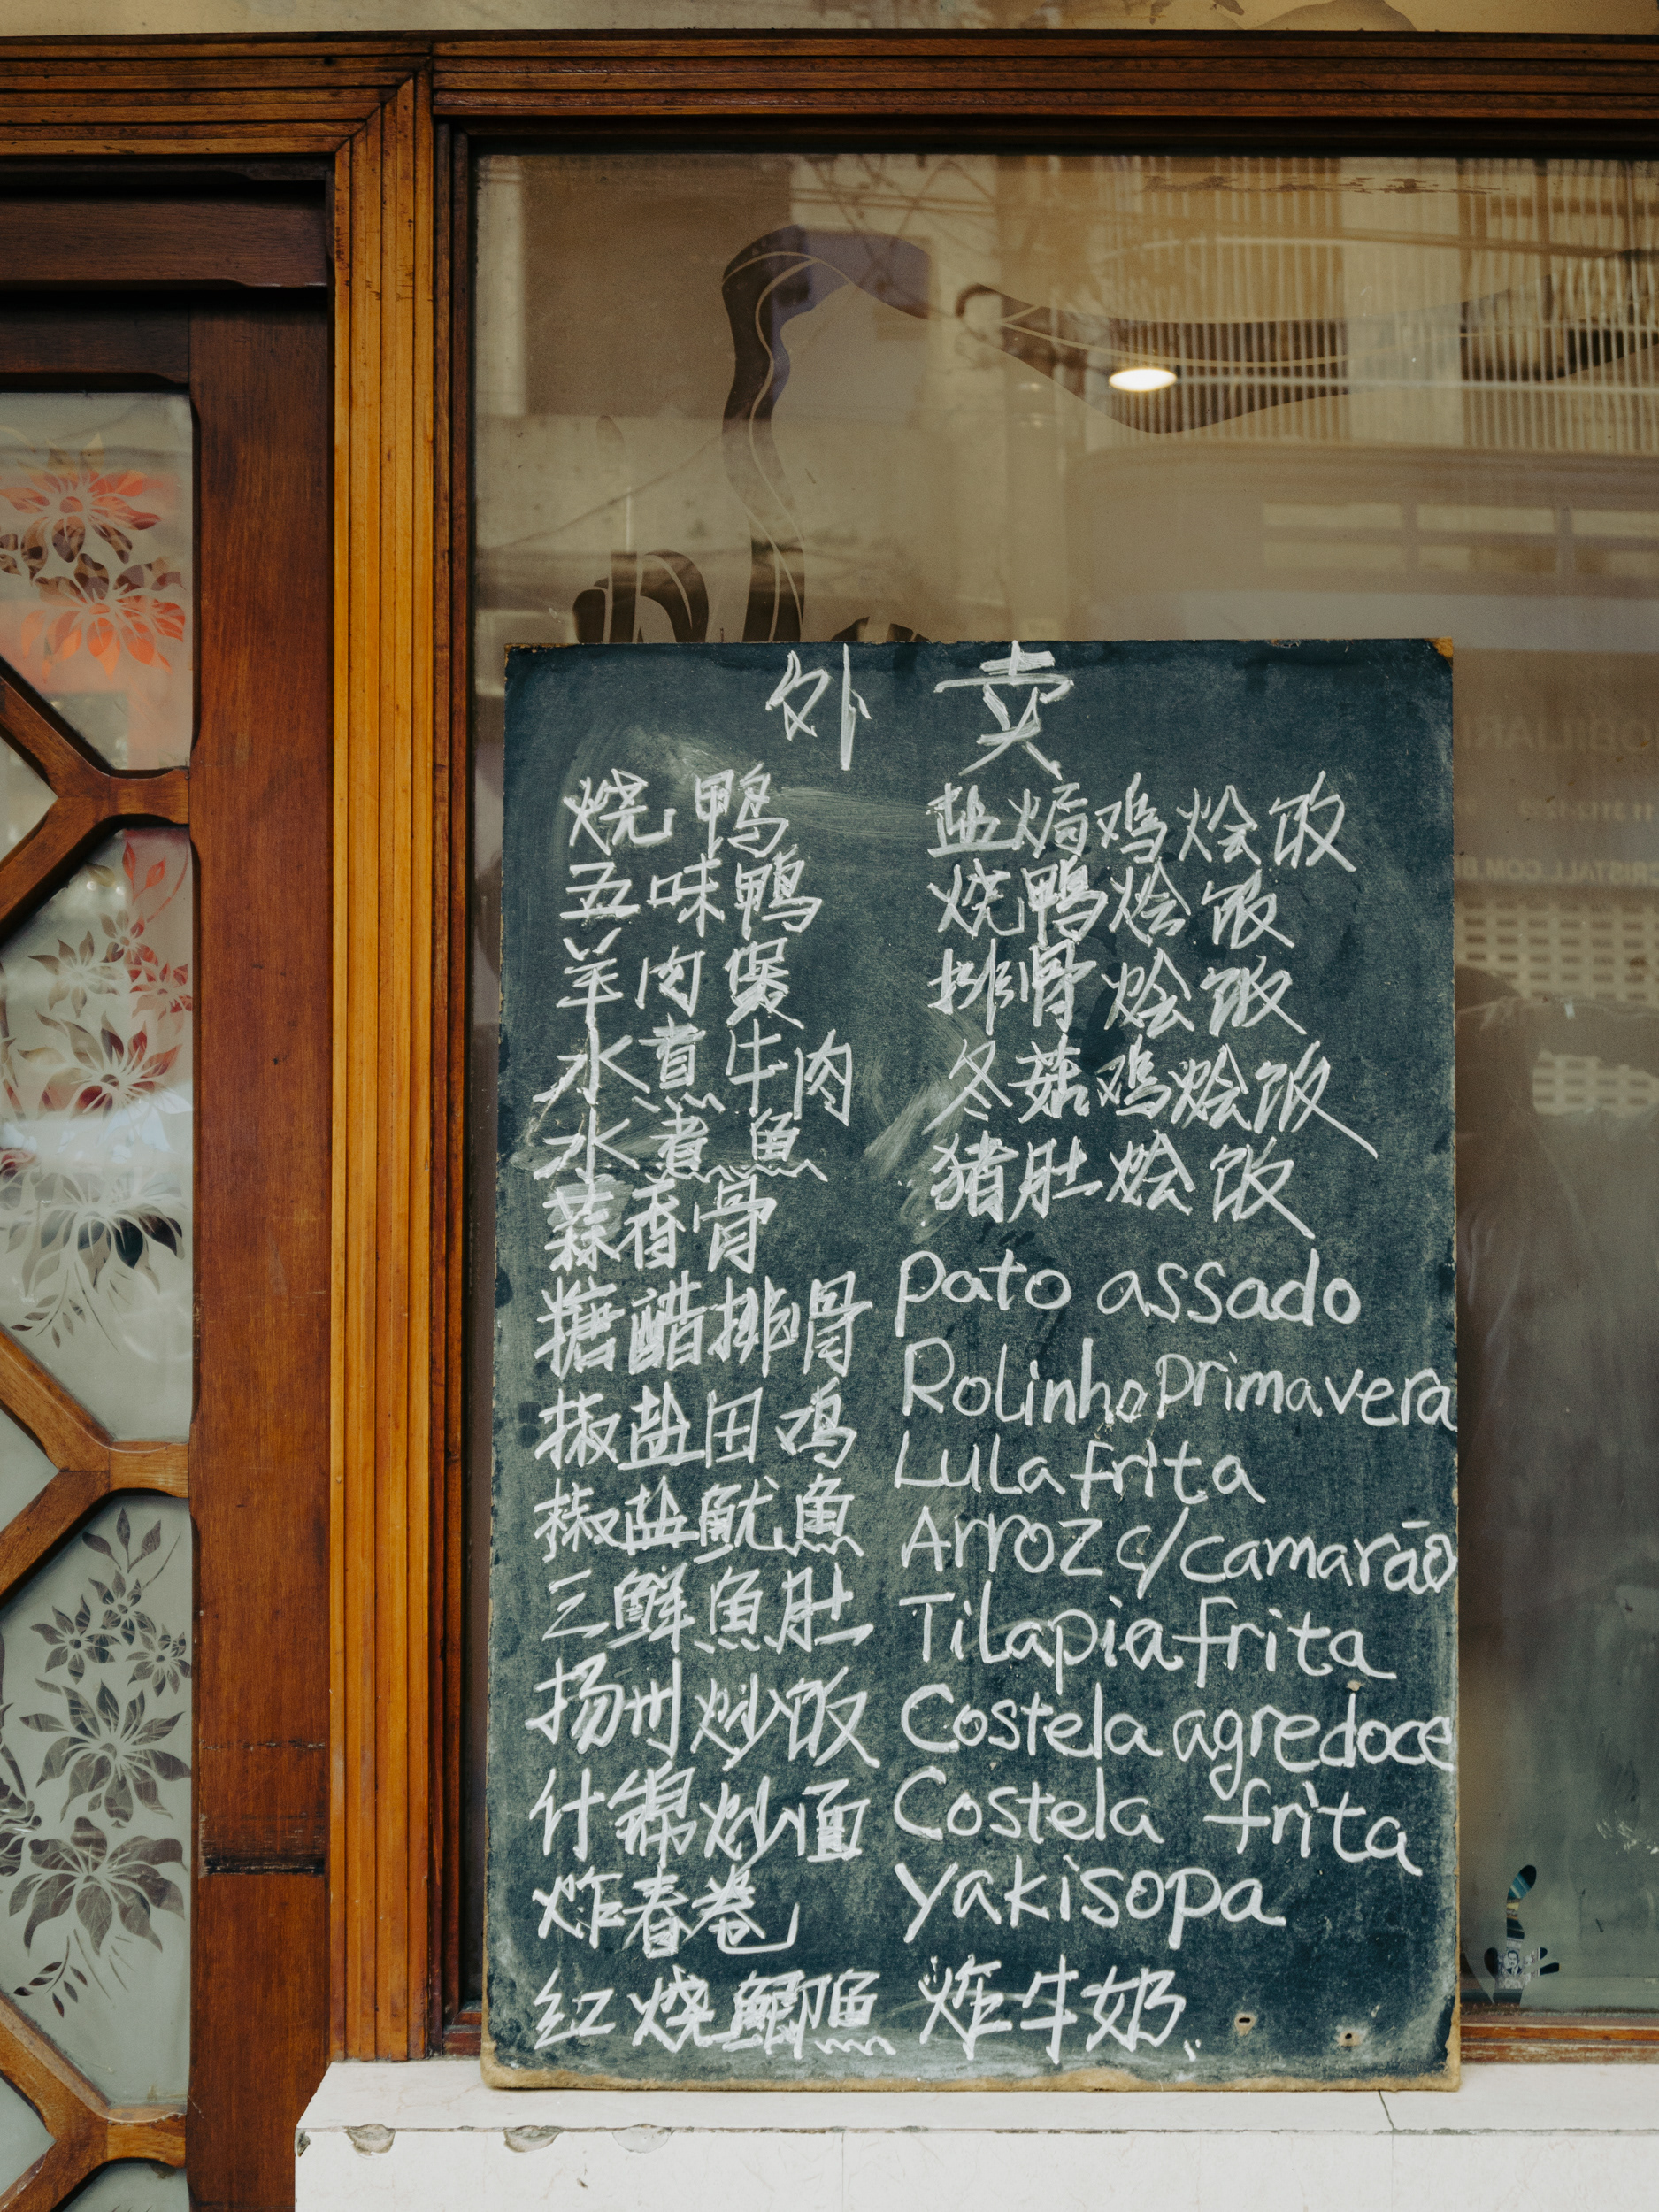 外卖
烧鸭
五味鸭
羊肉煲
水煮牛肉
水煮魚
蒜香骨
糖醋排骨
椒盐田鸡
椒盐魷魚
三鲜魚肚
扬州炒饭
什锦炒面
炸春卷
红烧鲫魚
盐焗鸡烩饭
烧鸭烩饭
排骨烩饭
冬菇鸡烩饭
猪肚烩饭
Pato assado
Rolinho Primavera
Lula frita
Arroz c/camarão
Tilapia frita
Costela agredoce
Costela frita
Yakisopa
炸牛奶